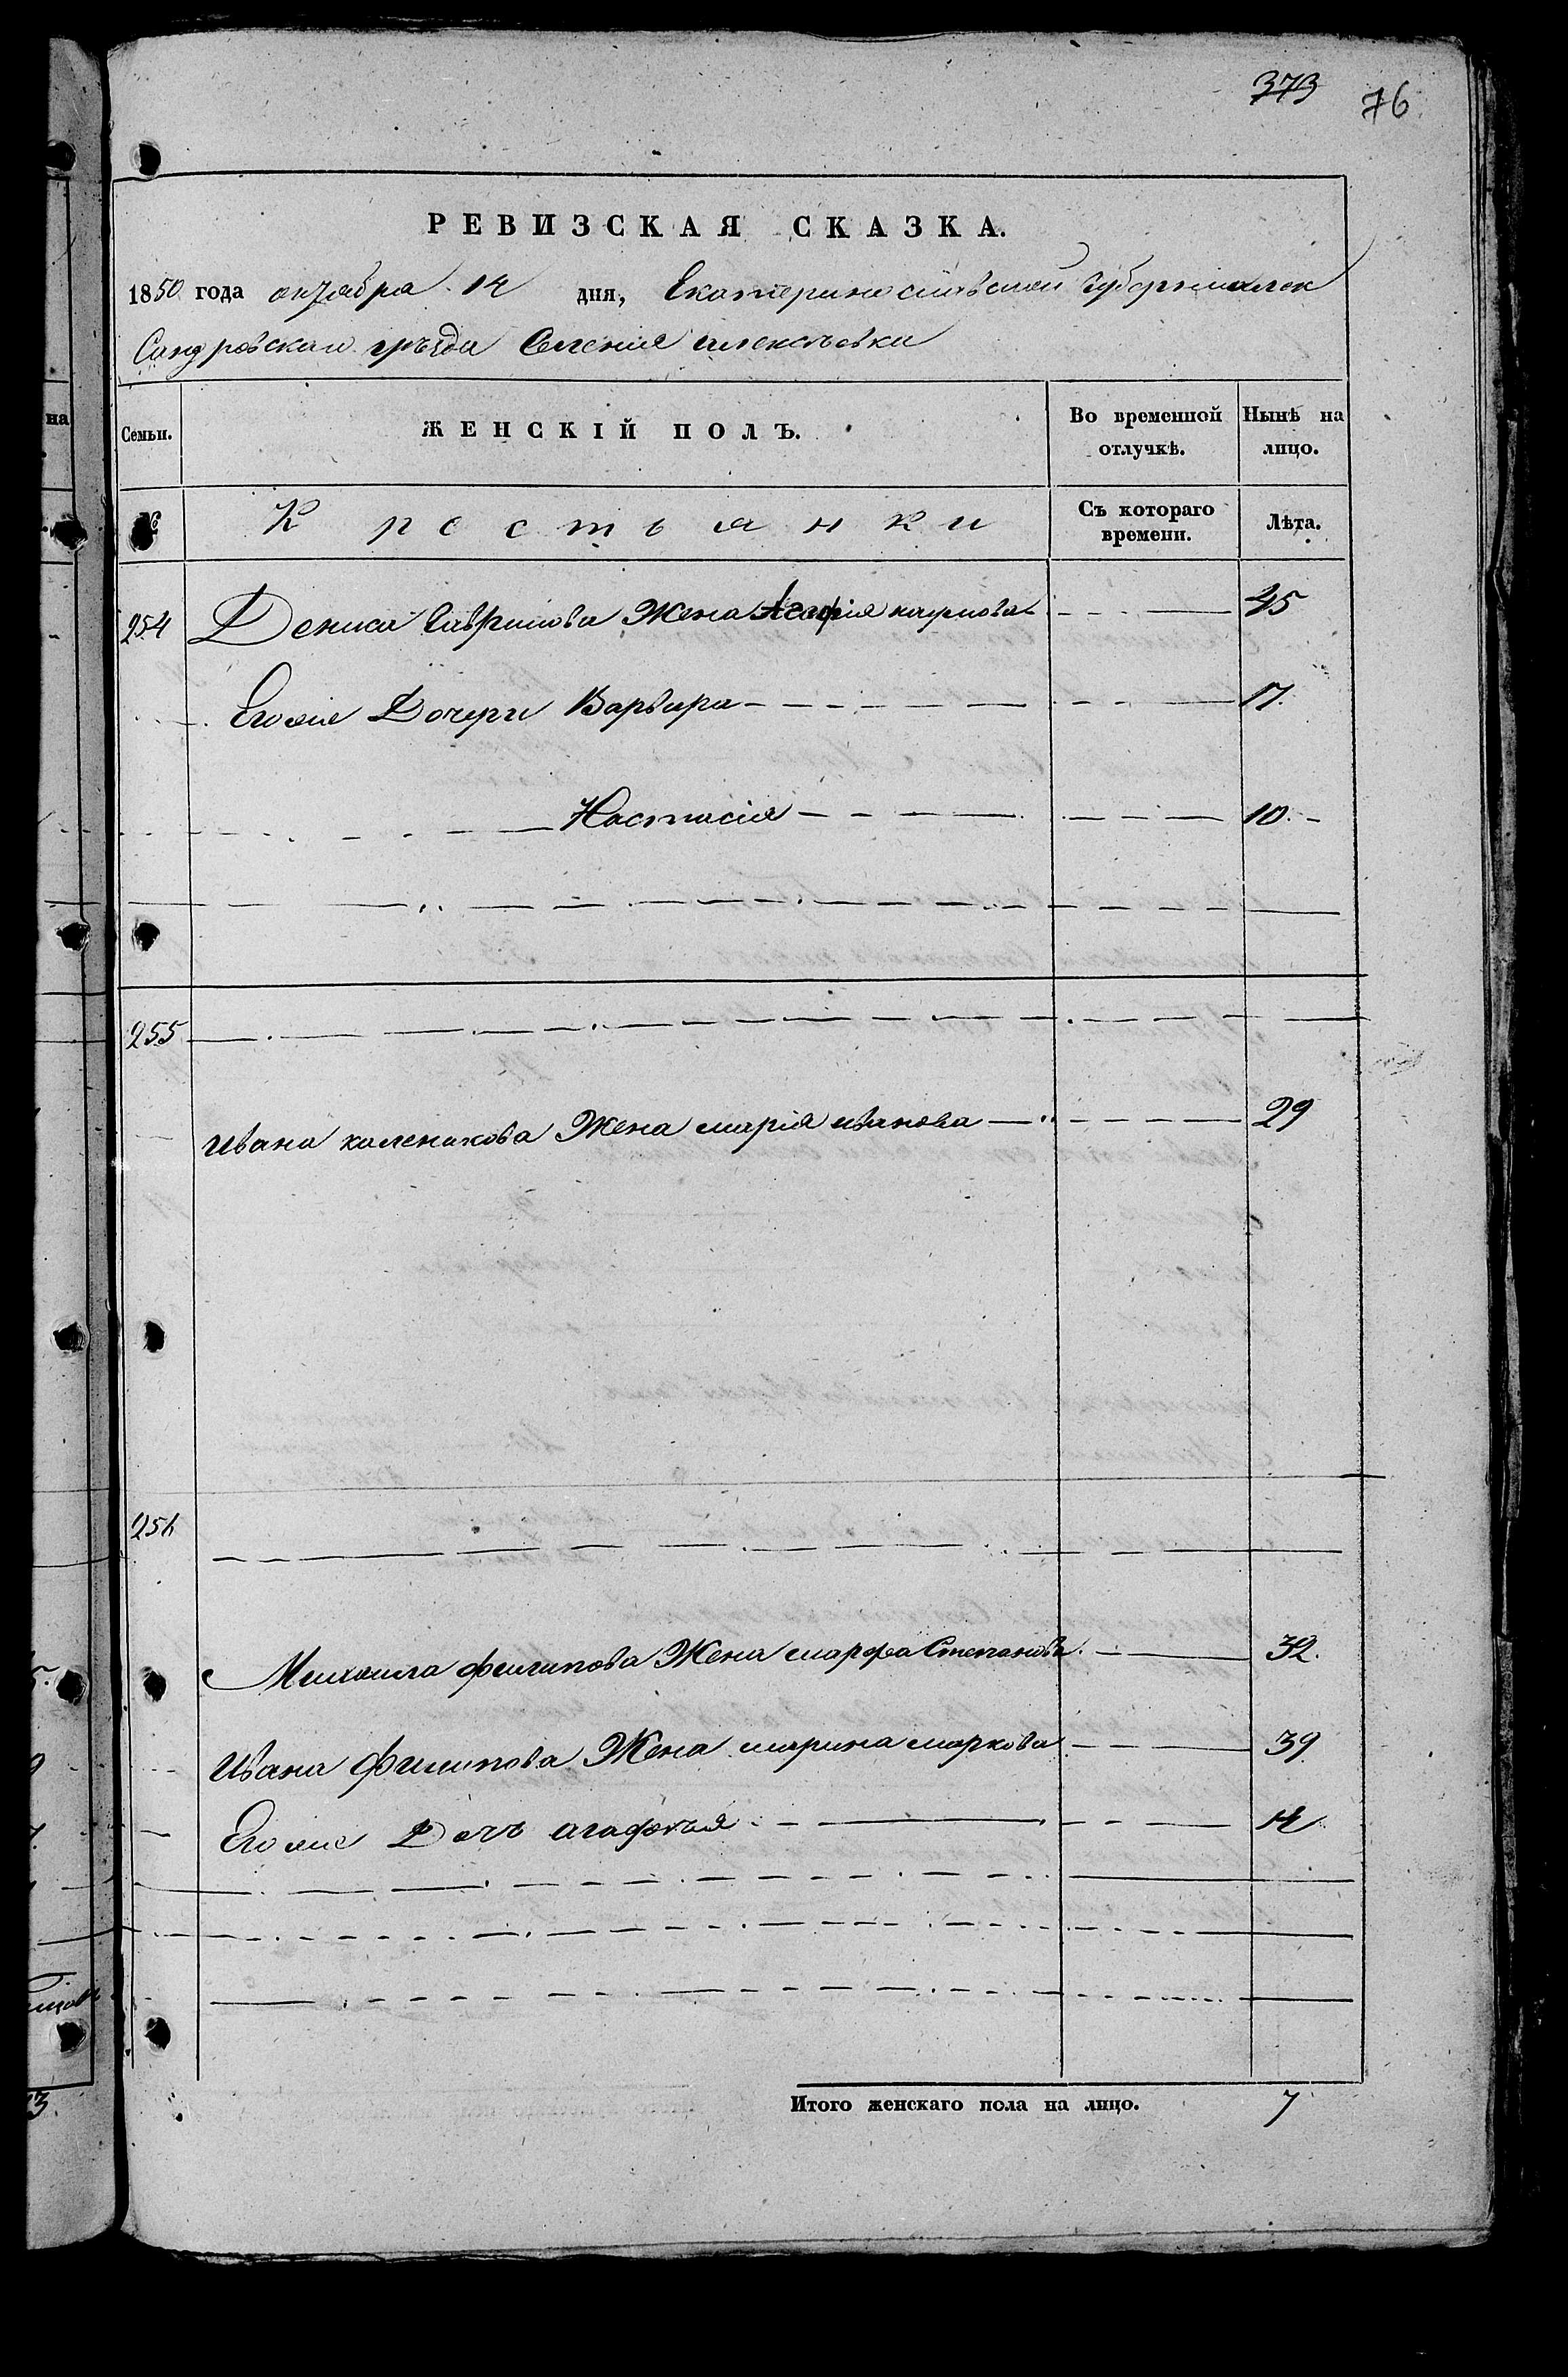 373 76
РЕВИЗСКАЯ СКАЗКА.
1850 года октября 14 дня, Екатеринославской губерніи алек
Сандровскаго уѣзда Селенія алексѣевки
Семьи. ЖЕНСКІЙ ПОЛЪ. Во временной отлучкѣ. Нынѣ на лицо.
№ Крестьянки Съ котораго времени. Лѣта.
254 Дениса Гаврилова Жена Агафія карпова 45
Егоже Дочери Варвара 17.
Настасія 10.
255
ивана каленикова Жена марія иванова 29
256
Михаила филипова Жена марфа Степанова 32.
ивана Филипова Жена марина маркова 39
Егоже Дочь агафья 14
Итого женскаго пола на лицо. 7